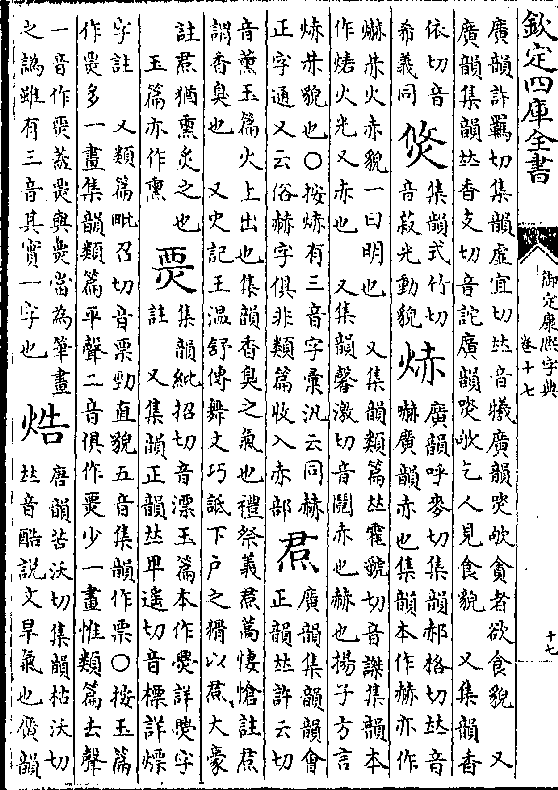 欽定四庫全書
御定康熙字典
卷十七
十七
廣韻許羈切集韻虛宜切𠀤音犧廣韻欨貪者欲食貌 又
廣韻集韻𠀤香支切音訑廣韻欨乞人見食貌 又集韻香
依切音
希義同
焂
集韻式竹切
音菽光動貌
焃
廣韻呼麥切集韻郝格切𠀤音
嚇廣韻赤也集韻本作赫亦作
爀𠀤火赤貌一曰明也 又集韻類篇𠀤霍虢切音謋集韻本
作㷇火光又赤也 又集韻馨激切音鬩赤也赫也揚子方言
焃𠀤貌也〇按焃有三音字彙汎云同赫
正字通又云俗赫字俱非類篇收入赤部
焄
廣韻集韻韻會
正韻𠀤許云切
音薰玉篇火上出也集韻香臭之氣也禮祭義焄蒿悽愴註焄
謂香臭也 又史記王溫舒傳舞文巧詆下戶之猾以焄大豪
註焄猶熏炙之也
玉篇亦作熏
集韻紕招切音漂玉篇本作詳字
註 又集韻正韻𠀤卑遙切音標詳熛
字註 又類篇毗召切音票勁直貌五音集韻作票〇按玉篇
作多一畫集韻類篇平聲二音俱作少一畫惟類篇去聲
一音作蓋與當為筆畫
之譌雖有三音其實一字也
焅
唐韻苦沃切集韻枯沃切
𠀤音酷說文旱氣也廣韻